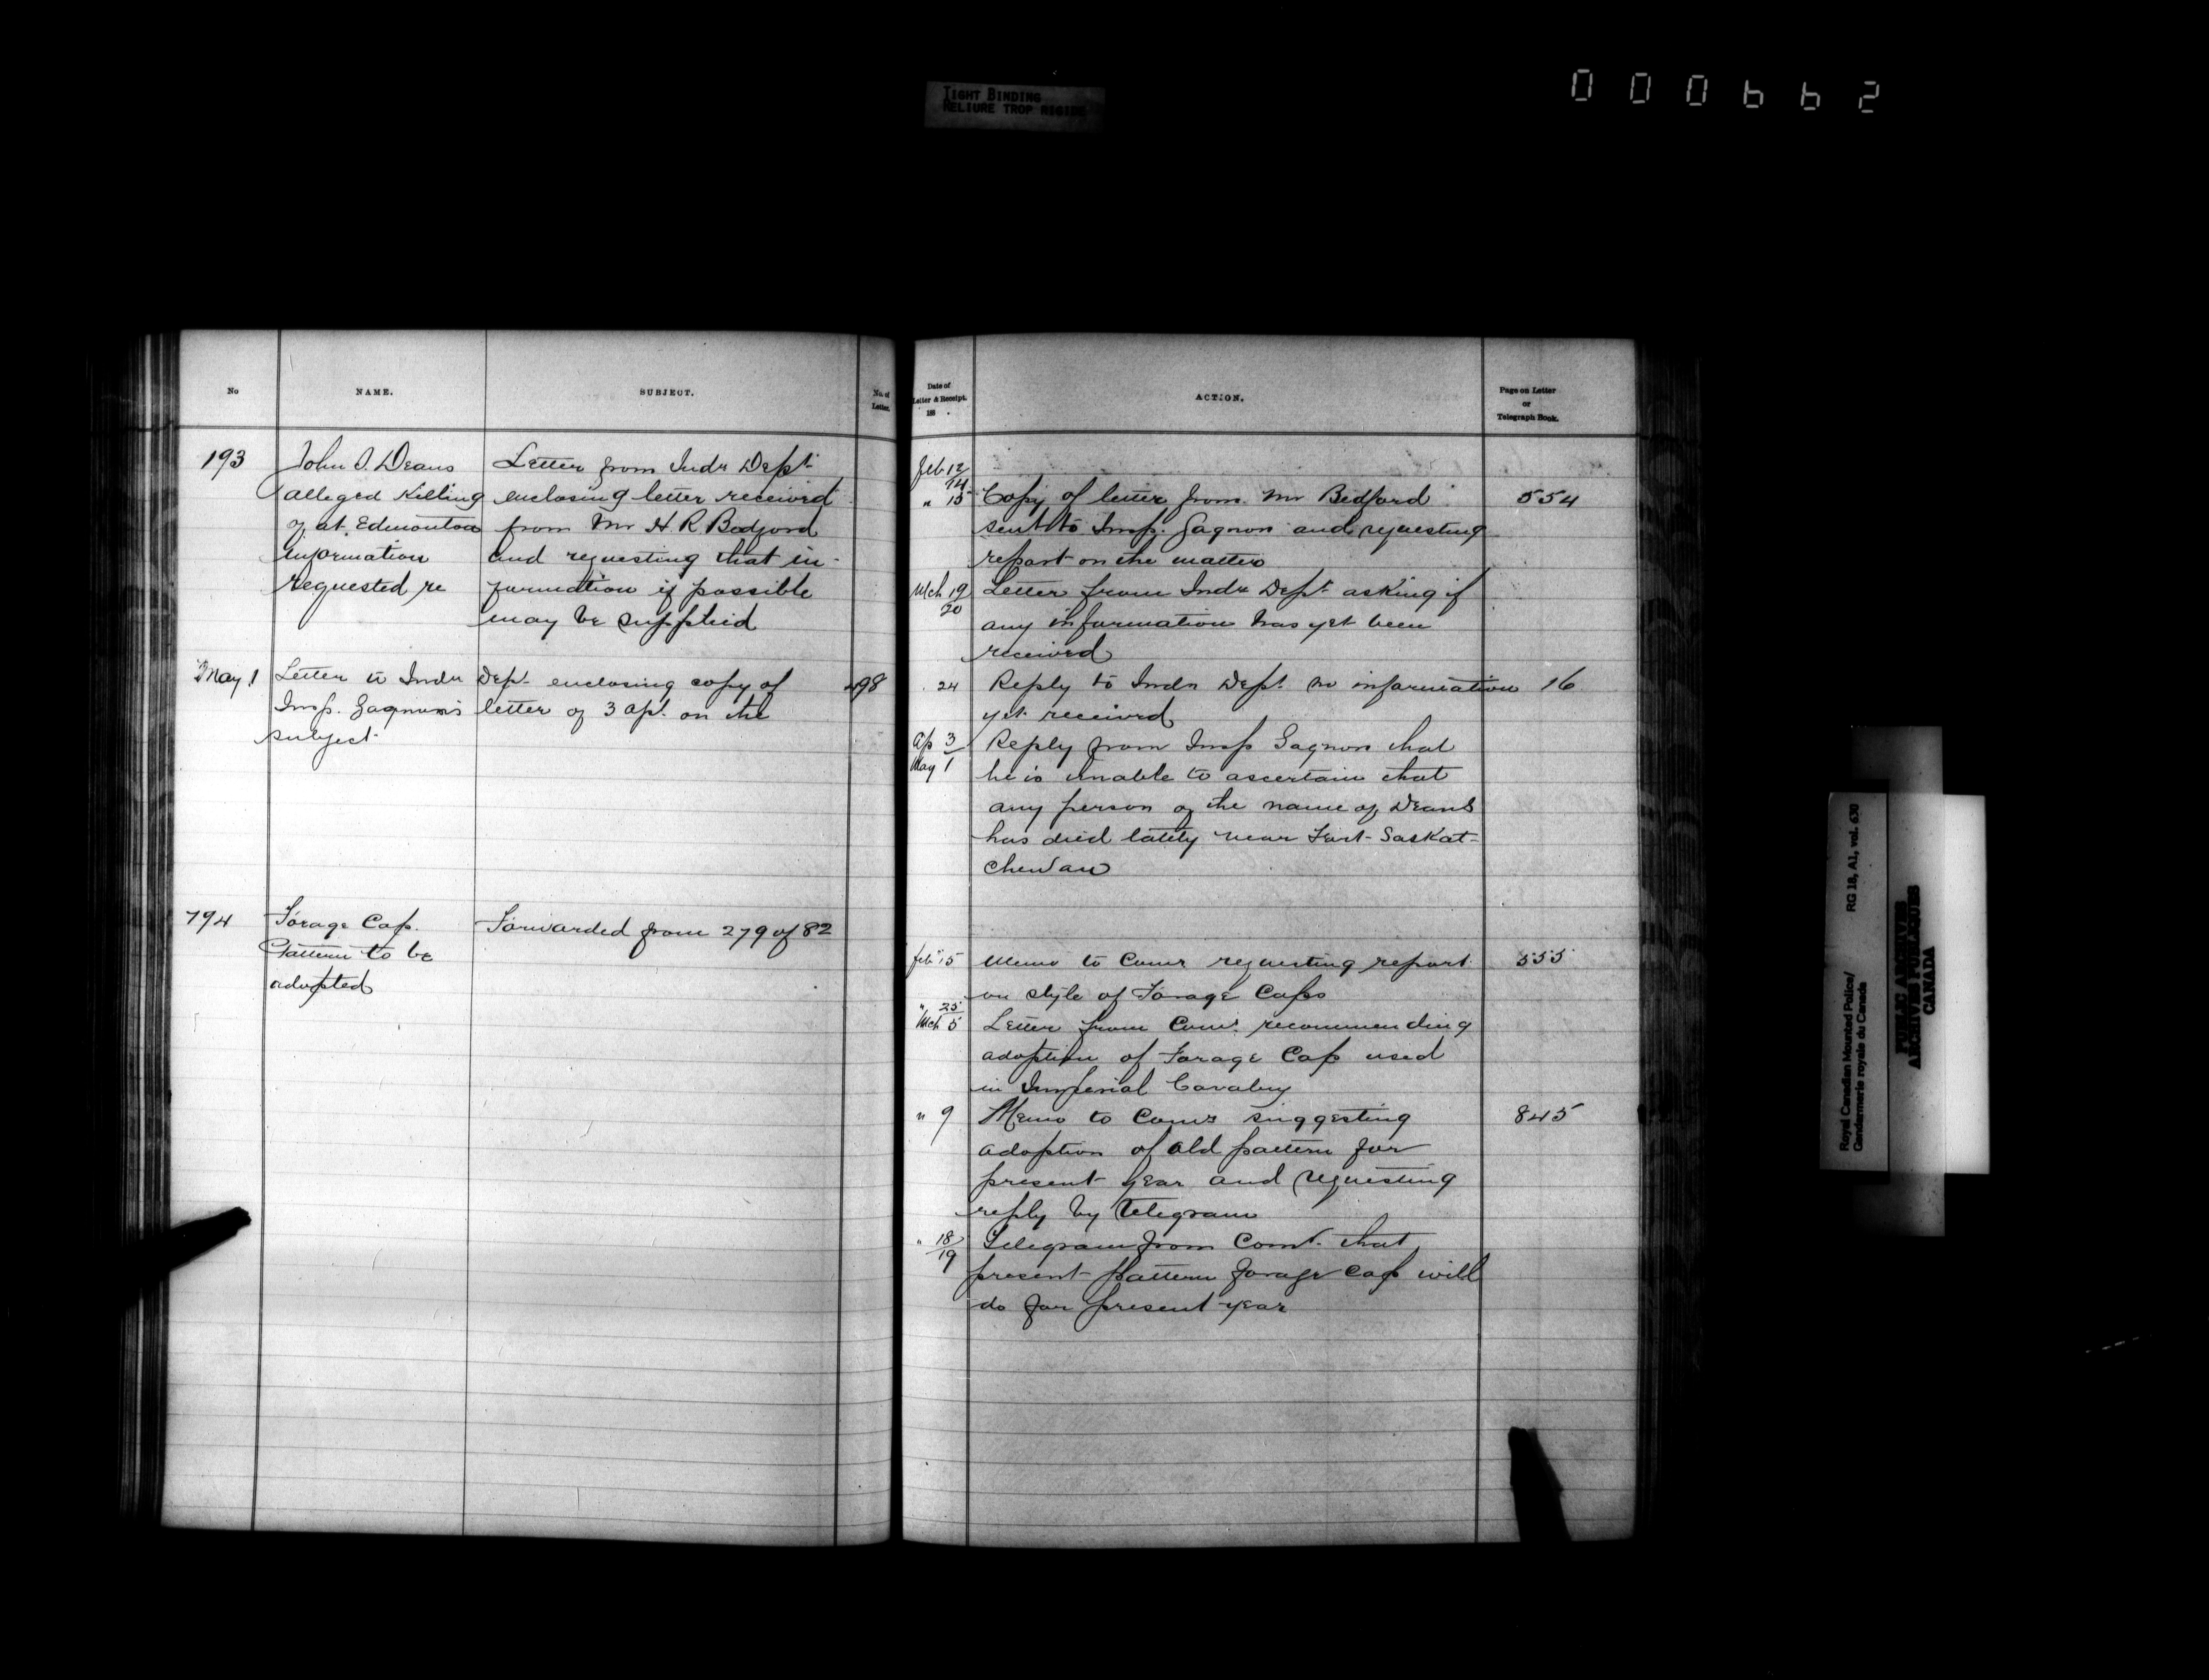 TIGHT BINDING
RELIURE TROP RIGIDE
000662
No
NAME.
SUBJECT.
No. of
Letter.
193
John O. Deans
alleged Killing
of at Edmonton
information
requested re
Letter from Indn Dept
enclosing letter received
from Mr H R Bedford
and requesting that in-
formation if possible
may be supplied
May 1
Letter to Indn Dept. enclosing copy of
Insp. Gagnon's letter of 3 Apl. on the
subject
498
194
Forage Cap.
Pattern to be
adopted
Forwarded from 279 of 82
Date of
Letter & Receipt.
188 .
ACTION.
Page on Letter
or
Telegraph Book.
Feb 12
14
" 15 Copy of letter from Mr Bedford 554
sent to Insp. Gagnon and requesting
report on the matter
Mch 19 Letter from Indn Dept. asking if
20 any information has yet been
received
24 Reply to Indn Dept. no information 16
yet received
Ap 3 Reply from Insp Gagnon that
May 1 he is unable to ascertain that
any person of the name of Deans
has died lately near Fort Saskat-
chewan
Feb 15 Memo to Comr requesting report 555
on style of Forage Caps
" 25
Mch 5 Letter from Comr. recommending
adoption of Forage Cap used
in Imperial Cavalry
" 9 Memo to Comr suggesting 845
adoption of old pattern for
present year and requesting
reply by Telegram
" 18 Telegram from Comr. that
19 present pattern forage cap will
do for present year
Royal Canadian Mounted Police/
Gendarmerie royale du Canada
RG 18, A1, vol. 630
PUBLIC ARCHIVES
ARCHIVES PUBLIQUES
CANADA